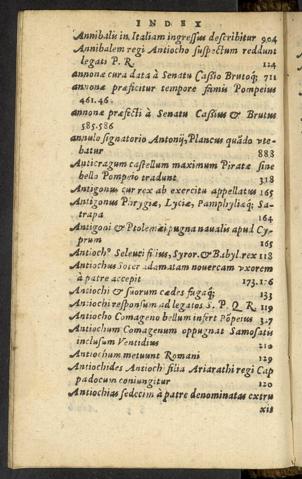 INDEX
Annibalis in Italiam ingressus describitur 904
Annibalem regi Antiocho suspectum reddunt
legati P. R. 124
annonæ cura data à Senatu Cassio Brutoq; 711
annonæ præficitur tempore famis Pompeius
461.46
annonæ præfecti à Senatu Cassius & Brutus
585.586
annulo signatorio Antonij, Plancus quādo vte-
batur 888
Anticragum castellum maximum Piratæ sine
bello Pompeio tradunt 318
Antigonus cur rex ab exercitu appellatus 165
Antigonus Phrygiæ, Lyciæ, Pamphyliæq; Sa-
trapa 164
Antigoni & Ptolemæi pugna naualis apud Cy-
prum 165
Antioch° Seleuci filius, Syror. & Babyl. rex 118
Antiochus soter adamatam nouercam vxorem
à patre accepit
Antiochi & suorum cædes fugaq; 133
Antiochi responsum ad legatos S. P. Q. R. 119
Antiocho Comageno bellum infert Pōpeius
Antiochum Comagenum oppugnat Samosatis
inclusum Ventidius 210
Antiochum metuunt Romani 129
Antiochides Antiochi filia Ariarathi regi Cap
padocum coniungitur 120
Antiochias sedecim à patre denominatas extru
xit